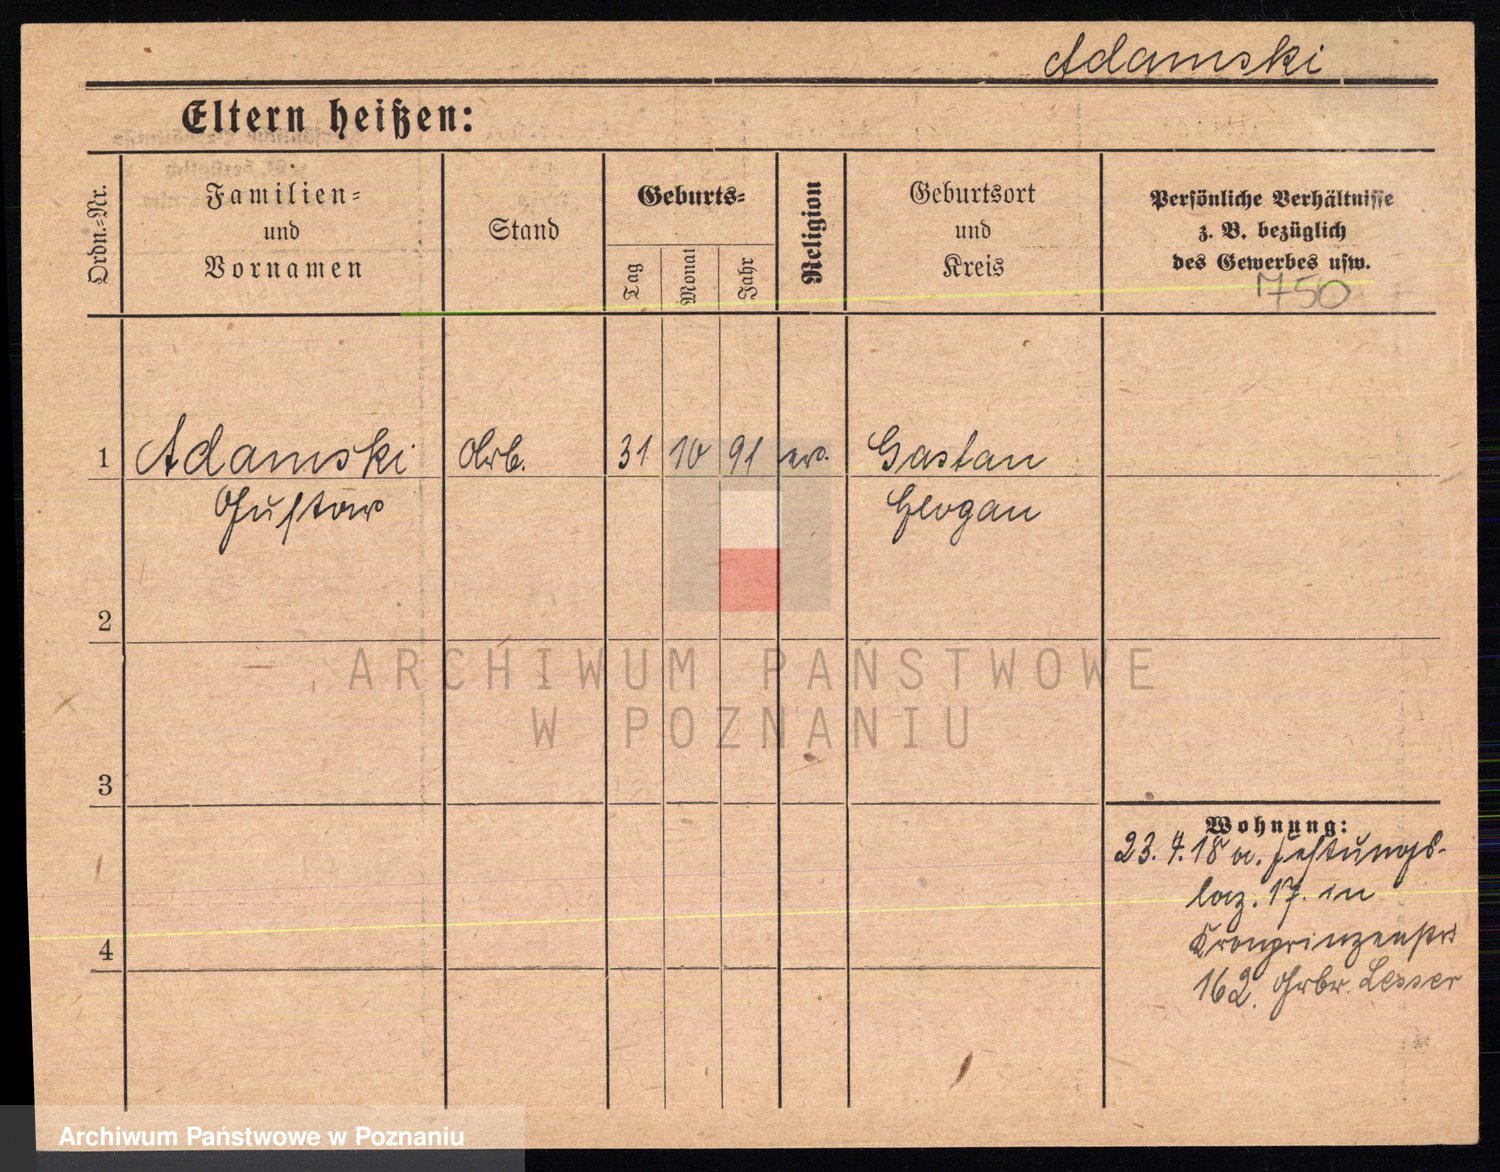 Adamski
Eltern heißen:
Ordn.=Nr.
Familien=
und
Vornamen
Stand
Geburts=
Tag
Monat
Jahr
Religion
Geburtsort
und
Kreis
Persönliche Verhältnisse
z. B. bezüglich
des Gewerbes usw.
750
1 Adamski Arb. 31 10 91 ev.
Gustav Glogau
2
3
4
Wohnung:
23. 7. 18 a. Festungs-
laz. 17. in
Kronprinzenstr
162. Lesser
ARCHIWUM PAŃSTWOWE
W POZNANIU
Archiwum Państwowe w Poznaniu